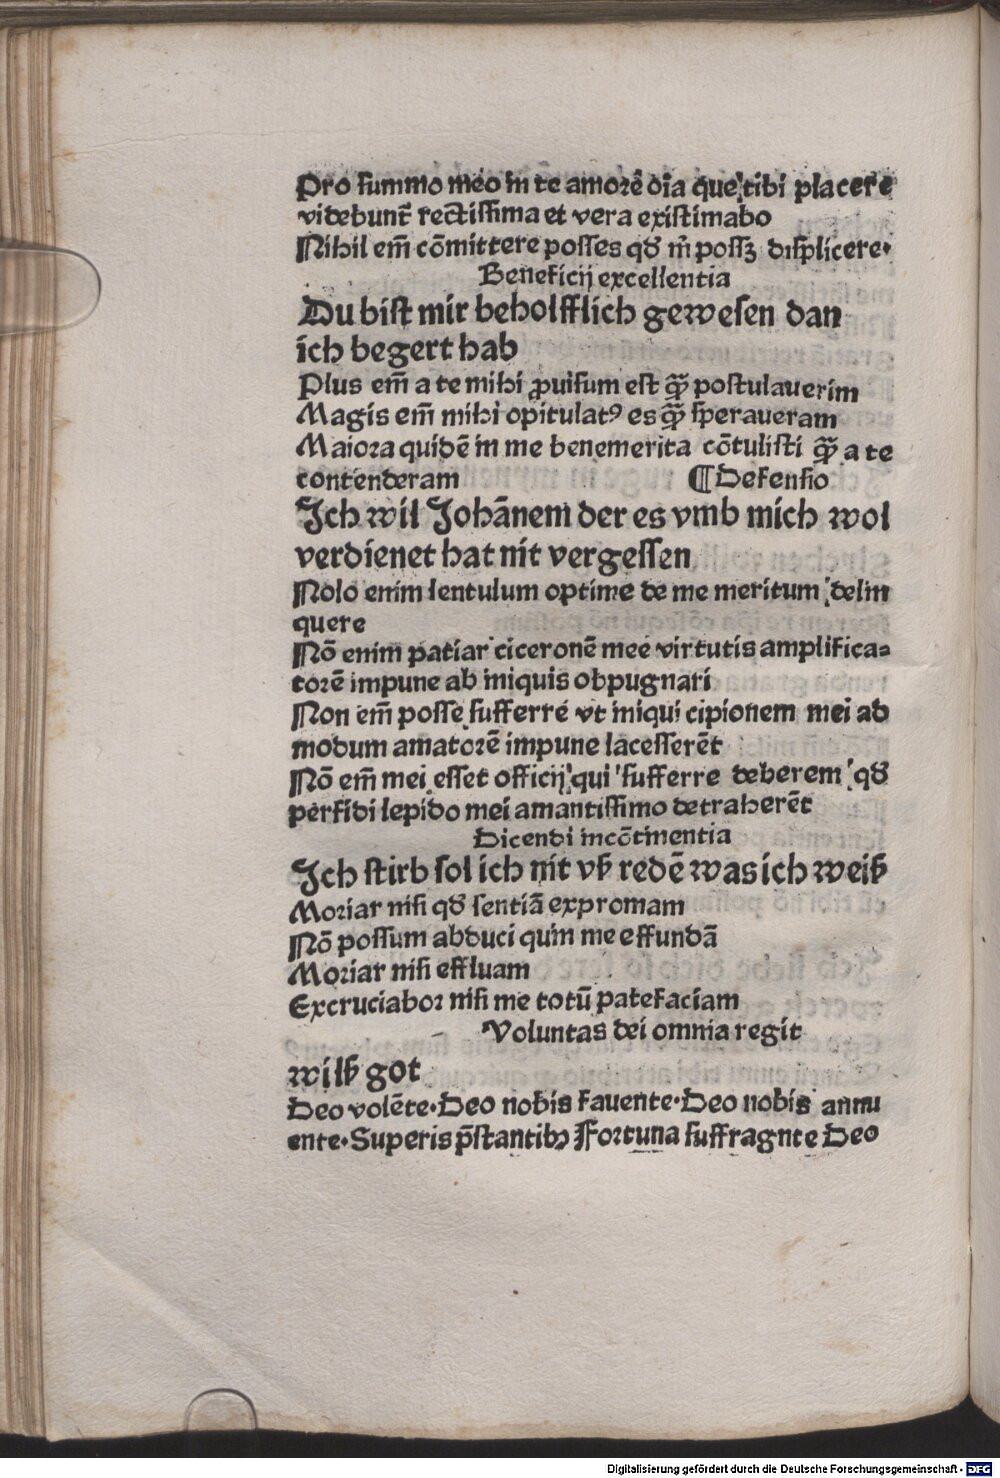 Pro summo meo in te amorē oīa que tibi placere
videbunt̄ rectissima et vera existimabo
Nihil em̄ cōmittere posses qđ m̄ possꝫ displicere.
Beneficij excellentia
Du bist mir beholfflich gewesen dan
ich begert hab
Plus em̄ a te mihi ꝓuisum est q̄ꝫ postulauerim
Magis em̄ mihi opitulatꝰ es q̄ꝫ speraueram
Maiora quidē in me benemerita cōtulisti q̄ꝫ a te
contenderam ¶Defensio
Ich wil Johānem der es vmb mich wol
verdienet hat nit vergessen
Nolo enim lentulum optime de me meritum delin
quere
Nō enim patiar ciceronē mee virtutis amplifica⸗
torē impune ab iniquis obpugnari
Non em̄ posse sufferre vt iniqui cipionem mei ad
modum amatorē impune lacesserēt
Nō em̄ mei esset officij qui sufferre deberem qđ
perfidi lepido mei amantissimo detraherēt
Dicendi incōtinentia
Ich stirb sol ich nit vß redē was ich weiß
Moriar nisi qđ sentiā expromam
Nō possum abduci quin me effundā
Moriar nisi effluam
Excruciabor nisi me totū patefaciam
Voluntas dei omnia regit
wilß got
Deo volēte. Deo nobis fauente. Deo nobis annu
ente. Superis p̄stantibꝰ Fortuna suffragnte Deo
Digitalisierung gefördert durch die Deutsche Forschungsgemeinschaft - DFG